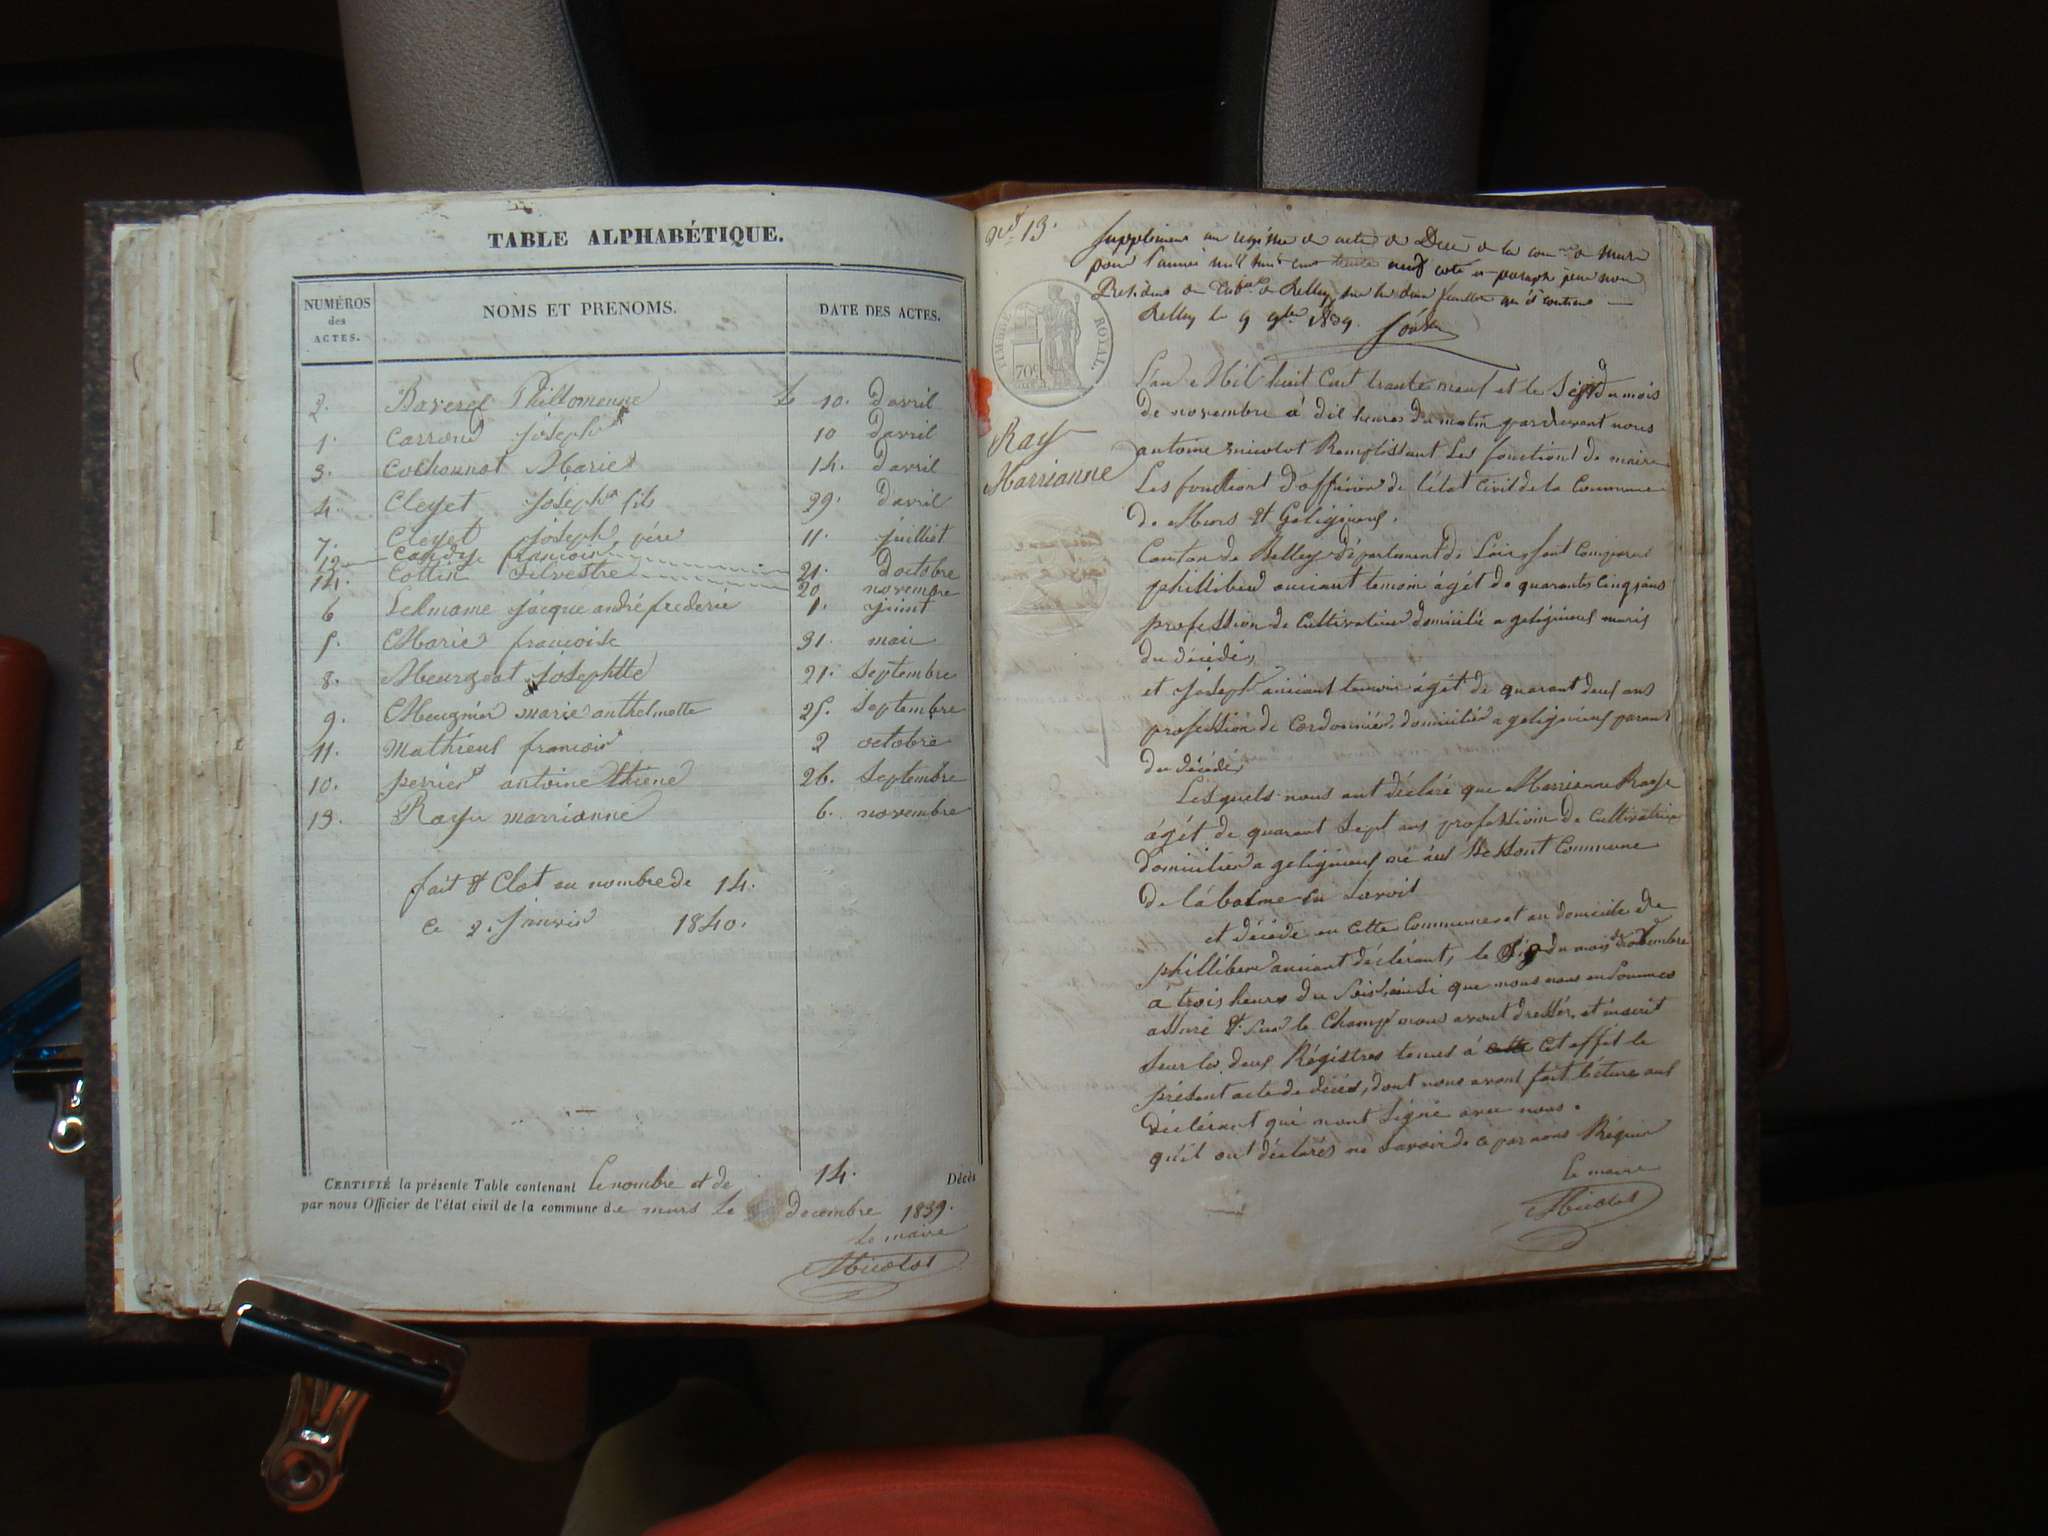 TABLE ALPHABÉTIQUE.
NUMÉROS des ACTES. NOMS ET PRENOMS. DATE DES ACTES.
2. Baverel Phillomenne Le 10. davril
1. Carrond Joseph 10 davril
3. Cochonnat Marie 14. davril
4. Cleyet Joseph fils 29. davril
7. Cleyet joseph père 11. juilliet
12 francois 21. doctobre
14. Cottin Silvestre 20 novembre
6 jacque andré frederic 1. juint
5. Marie francoise 31. mai
8. Meurgeat Josephtte 21. Septembre
9. Meugnier marie anthelmette 25. Septembre
11. Mathieus francois 2 octobre
10. perrier antoine thiene 26. Septembre
13. Raye marrianne 6. novembre
fait et Clot au nombre de 14.
Ce 2. Janvié 1840.
CERTIFIÉ la présente Table contenant le nombre et de 14. Décès
par nous Officier de l'état civil de la commune de murs le decembre 1839.
Le maire
Nicolot
No 13.
Supplément au registre de acte de Décè de la comne de Murs
pour l'année mil huit cent trente neuf coté et paraphé par nous
Président du Tribal de Belley, sur les deux feuillets qu'il contient
Belley le 9 9bre 1839.
TIMBRE ROYAL.
70c
Ray
Marrianne
L'an Mil huit Cent trante neuf et le Sept du mois
de novembre à dil heures du matin pardevent nous
antoine nicolot Remplissant Les fonctions de maire
Les fonctions d'officier de l'état Civil de la Commune
de Murs et Geligneus.
Canton de Belley département de Lain, sont comparus
phillibert anciant temoin agét de quarantes Cinq ans
profession de Cultivateur domicilié a geligneus maris
du décédés,
et Joseph anciant temoin agét de quarant deus ans
profession de Cordonnier, domicilier a geligneus parant
du décédés
Lesquels nous ont déclaré que Marrianne Raye
agét de quarant Sept ans profession de Cultivatrice
domicilier a geligneus né aus Commune
de la balme en Savoit
et décédé en cette Commune et au domicile de
phillibert anciant déclérant, le du mois de novembre
à trois heures du Soir, ainsi que nous nous en Sommes
assuré et Sur le Champ nous avont dressér, et inscrit
Sur les deus Régistres tenus à cet effet le
présent acte de décés, dont nous avont fait lécture aus
déclérant qui n'ont Signé avec nous.
qu'il ont déclarés ne Savoir de ce par nous Réquis
Le maire
Nicolot